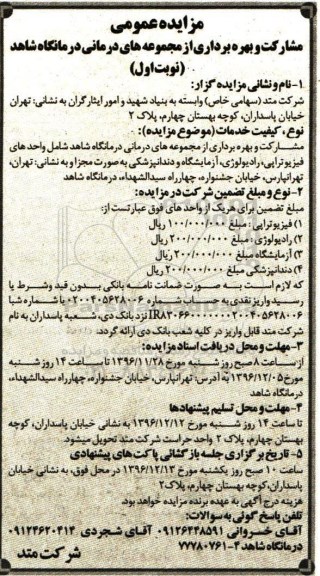 مزایده عمومی
مشارکت و بهره برداری از مجموعه های درمانی درمانگاه شاهد
(نوبت اول)
۱- نام و نشانی مزایده گزار:
شرکت متد (سهامی خاص) وابسته به بنیاد شهید و امور ایثارگران به نشانی: تهران
خیابان پاسداران، کوچه بهستان چهارم، پلاک ۲
نوع، کیفیت خدمات (موضوع مزایده):
مشارکت و بهره برداری از مجموعه های درمانی درمانگاه شاهد شامل واحد های
فیزیوتراپی، رادیولوژی، آزمایشگاه و دندانپزشکی به صورت مجزا و به نشانی: تهران،
تهرانپارس، خیابان جشنواره، چهارراه سیدالشهداء، درمانگاه شاهد
۲- نوع و مبلغ تضمین شرکت در مزایده:
مبلغ تضمین برای هریک از واحد های فوق عبارتست از:
۱) فیزیوتراپی: مبلغ ۱۰۰/۰۰۰/۰۰۰ ریال
۲) رادیولوژی: مبلغ ۲۰۰/۰۰۰/۰۰۰ ریال
۳) آزمایشگاه مبلغ ۲۰۰/۰۰۰/۰۰۰ ریال
۴) دندانپزشکی مبلغ ۲۰۰/۰۰۰/۰۰۰ ریال
که لازم است به صورت ضمانت نامه بانکی بدون قید وشرط یا
رسید واریز نقدی به حساب شماره ۰۲۰۰۴۰۵۶۲۸۰۰۶ با شماره شبا
IR۸۳۰۶۶۰۰۰۰۰۰۰۲۰۰۴۰۵۶۲۸۰۰۶ نزد بانک دی، شعبه پاسداران به نام
شرکت متد قابل واریز در کلیه شعب بانک دی ارائه گردد.
۳- مهلت و محل دریافت اسناد مزایده:
از ساعت ۸ صبح روز شنبه مورخ ۱۳۹۶/۱۱/۲۸ تا ساعت ۱۴ روز شنبه
مورخ ۱۳۹۶/۱۲/۰۵ به آدرس: تهرانپارس، خیابان جشنواره، چهارراه سیدالشهداء،
درمانگاه شاهد
۴- مهلت و محل تسلیم پیشنهادها
تا ساعت ۱۴ روز شنبه مورخ ۱۳۹۶/۱۲/۱۲ به نشانی خیابان پاسداران، کوچه
بهستان چهارم، پلاک ۲ واحد حراست شرکت متد تحویل میشود.
۵- تاریخ برگزاری جلسه بازگشائی پاکت های پیشنهادی
ساعت ۱۰ صبح روز یکشنبه مورخ ۱۳۹۶/۱۲/۱۳ در محل فوق، به نشانی خیابان
پاسداران، کوچه بهستان چهارم، پلاک ۲
هزینه درج آگهی به عهده برنده مزایده خواهد بود.
تلفن پاسخ گوئی به سوالات:
آقای خسروانی ۰۹۱۲۶۴۴۸۵۹۱ آقای شجردی ۰۹۱۲۴۶۲۰۴۱۴
درمانگاه شاهد ۴-۷۷۷۸۰۷۶۱
شرکت متد